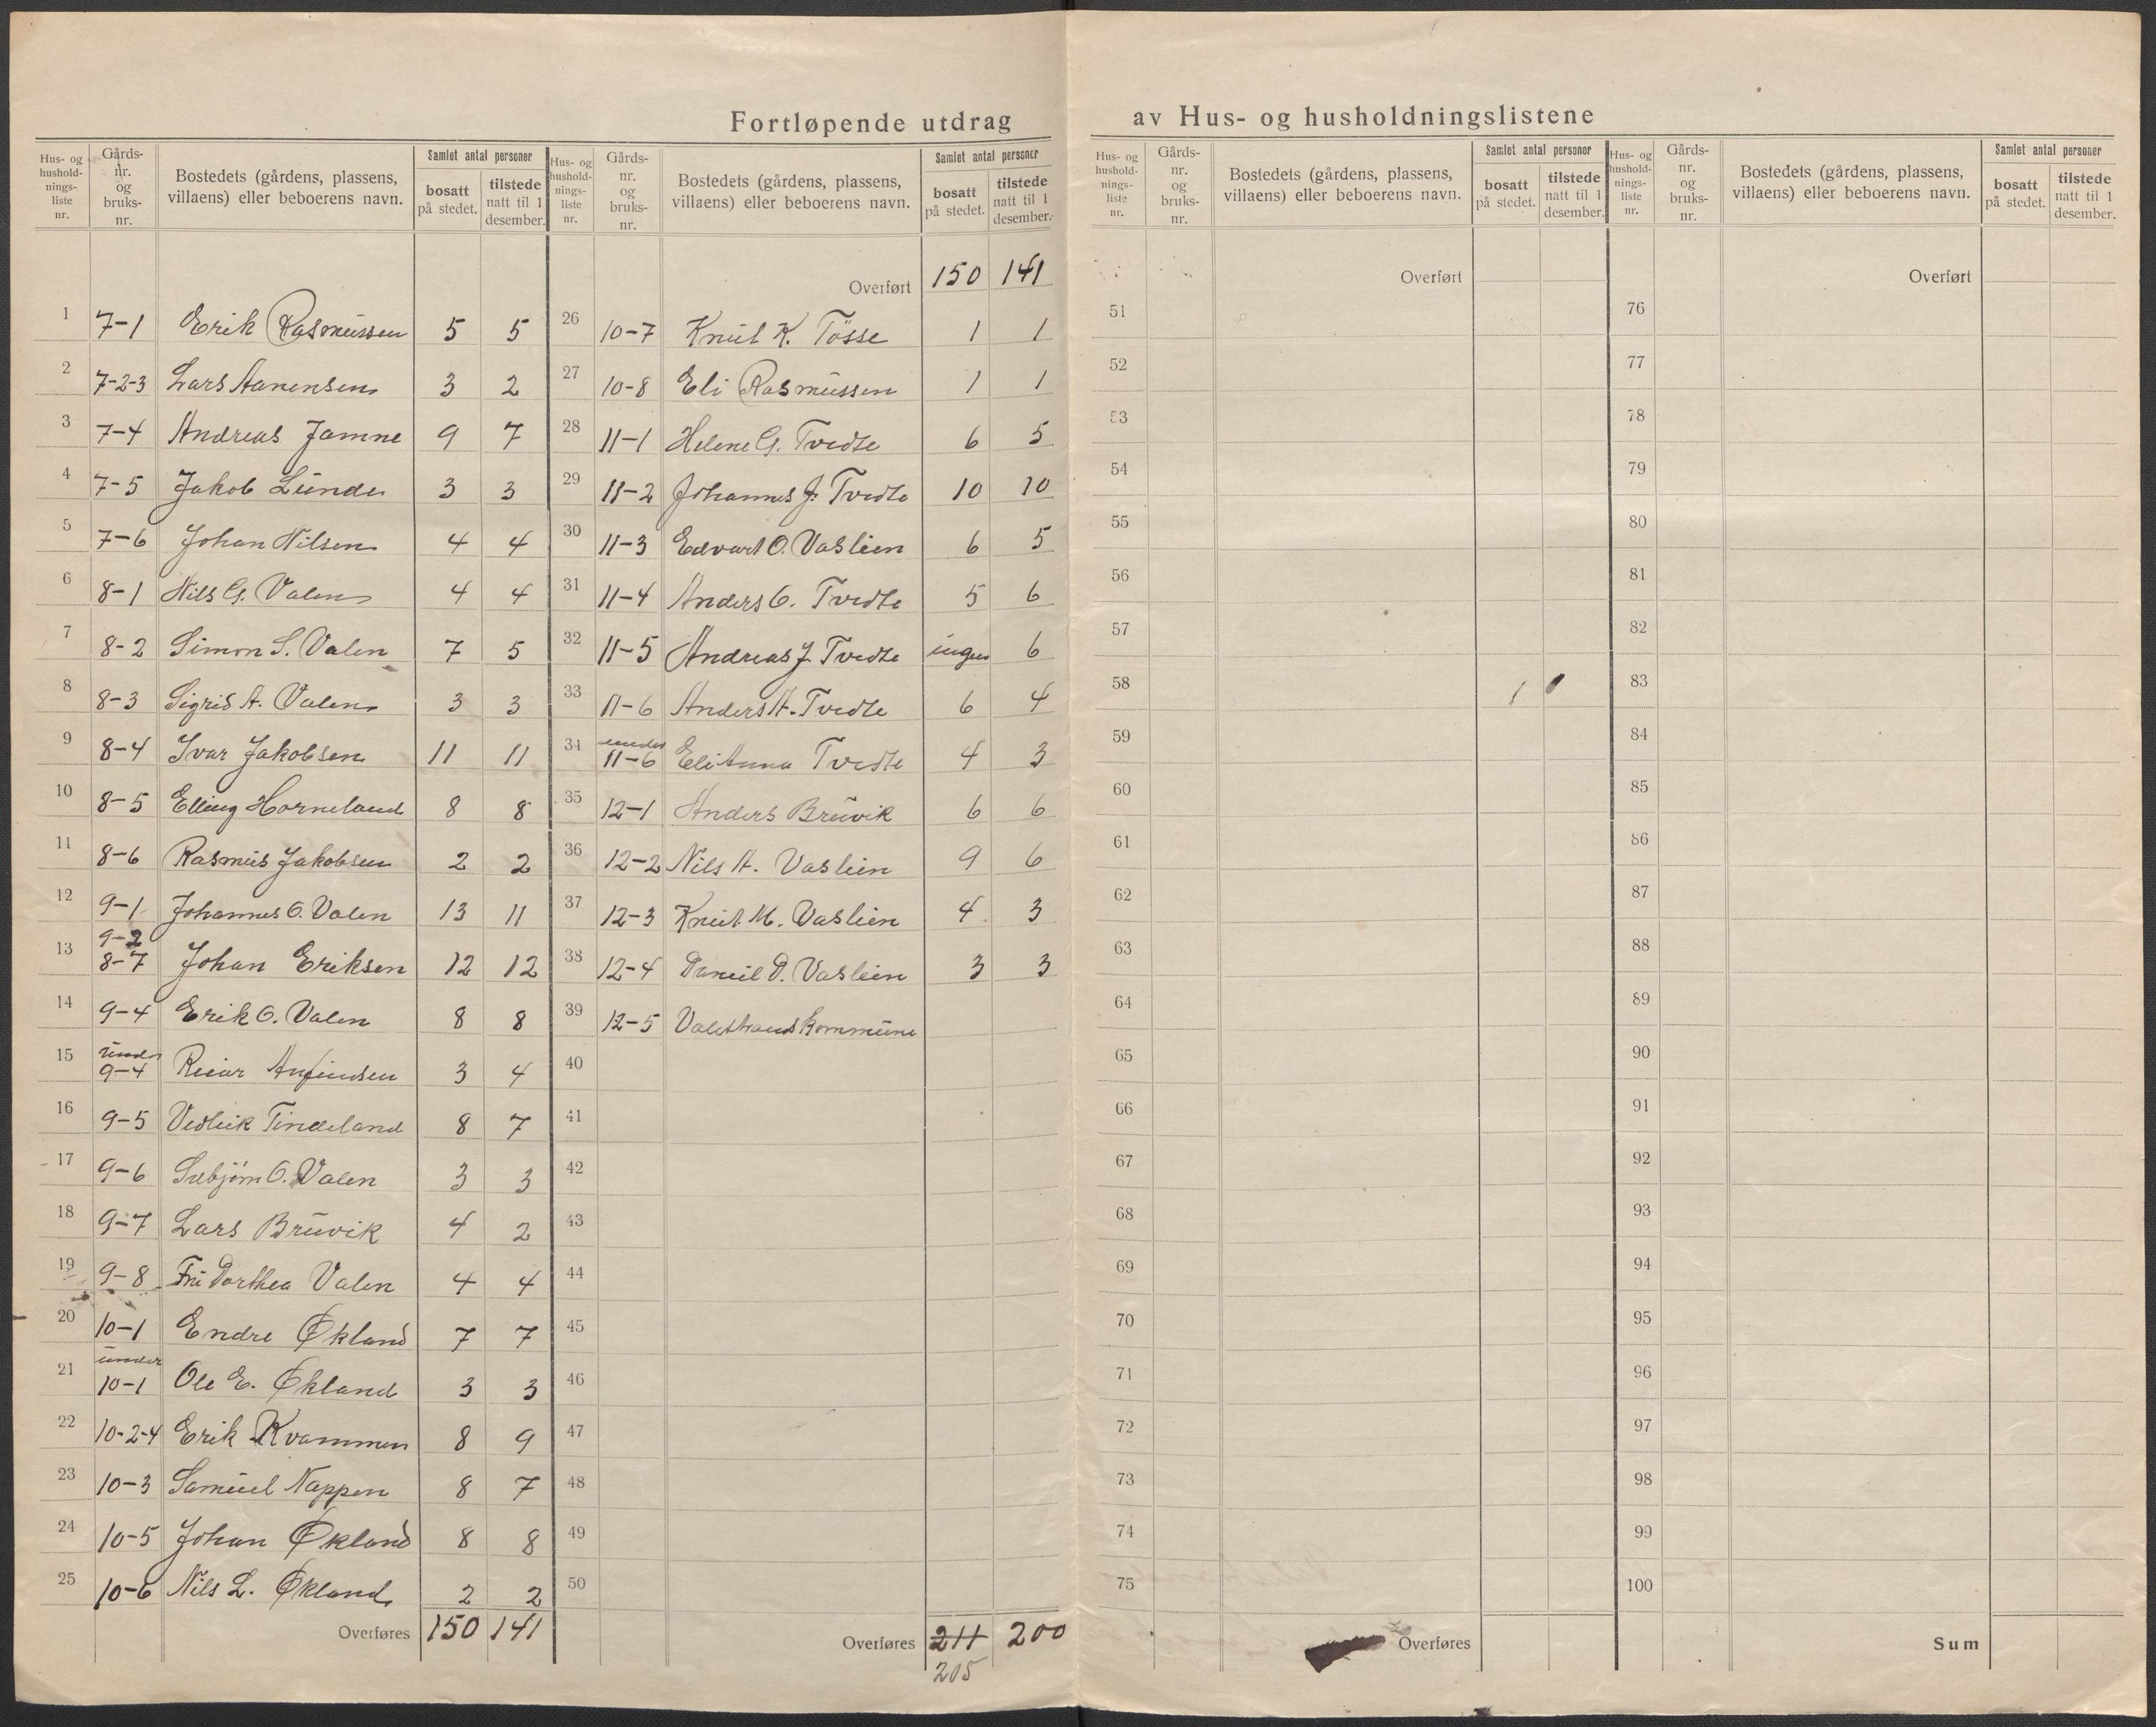 Fortløpende utdrag av Hus- og husholdningslistene
Hus- og husholdnings-liste nr. Gårds-nr. og bruks-nr. Bostedets (gårdens, plassens, villaens) eller beboerens navn. Samlet antal personer bosatt på stedet. tilstede natt til 1 desember.
1 7-1 Erik Rasmussen 5 5
2 7-2-3 Lars Aanensen 3 2
3 7-4 Andreas Jamne 9 7
4 7-5 Jakob Lunde 3 3
5 7-6 Johan Nilsen 4 4
6 8-1 Nils G. Valen 4 4
7 8-2 Simon S. Valen 7 5
8 8-3 Sigrid A. Valen 3 3
9 8-4 Ivar Jakobsen 11 11
10 8-5 Elling Horneland 8 8
11 8-6 Rasmus Jakobsen 2 2
12 9-1 Johannes O. Valen 13 11
13 9-2 8-7 Johan Eriksen 12 12
14 9-4 Erik O. Valen 8 8
15 under 9-4 Reiar Anfindsen 3 4
16 9-5 Vedleik Tindeland 8 7
17 9-6 Sebjørn O. Valen 3 3
18 9-7 Lars Bruvik 4 2
19 9-8 Fru Dorthea Valen 4 4
20 10-1 Endre Økland 7 7
21 under 10-1 Ole E. Økland 3 3
22 10-2-4 Erik Kvammen 8 9
23 10-3 Samuel Nappen 8 7
24 10-5 Johan Økland 8 8
25 10-6 Nils L. Økland 2 2
Overføres 150 141
Hus- og husholdnings-liste nr. Gårds-nr. og bruks-nr. Bostedets (gårdens, plassens, villaens) eller beboerens navn. Samlet antal personer bosatt på stedet. tilstede natt til 1 desember.
Overført 150 141
26 10-7 Knut K. Tösse 1 1
27 10-8 Eli Rasmussen 1 1
28 11-1 Helene G. Tvedte 6 5
29 11-2 Johannes J. Tvedte 10 10
30 11-3 Edvart O. Vaslien 6 5
31 11-4 Anders O. Tvedte 5 6
32 11-5 Andreas J. Tvedte ingen 6
33 11-6 Anders A. Tvedte 6 4
34 under 11-6 Eli Anna Tvedte 4 3
35 12-1 Anders Bruvik 6 6
36 12-2 Nils A. Vaslien 9 6
37 12-3 Knut M. Vaslien 4 3
38 12-4 Daniel D. Vaslien 3 3
39 12-5 Valestrand kommune
40
41
42
43
44
45
46
47
48
49
50
Overføres 211 200
205
Hus- og husholdnings-liste nr. Gårds-nr. og bruks-nr. Bostedets (gårdens, plassens, villaens) eller beboerens navn. Samlet antal personer bosatt på stedet. tilstede natt til 1 desember.
Overført
51
52
53
54
55
56
57
58
59
60
61
62
63
64
65
66
67
68
69
70
71
72
73
74
75
Overføres
Hus- og husholdnings-liste nr. Gårds-nr. og bruks-nr. Bostedets (gårdens, plassens, villaens) eller beboerens navn. Samlet antal personer bosatt på stedet. tilstede natt til 1 desember.
Overført
76
77
78
79
80
81
82
83
84
85
86
87
88
89
90
91
92
93
94
95
96
97
98
99
100
Sum